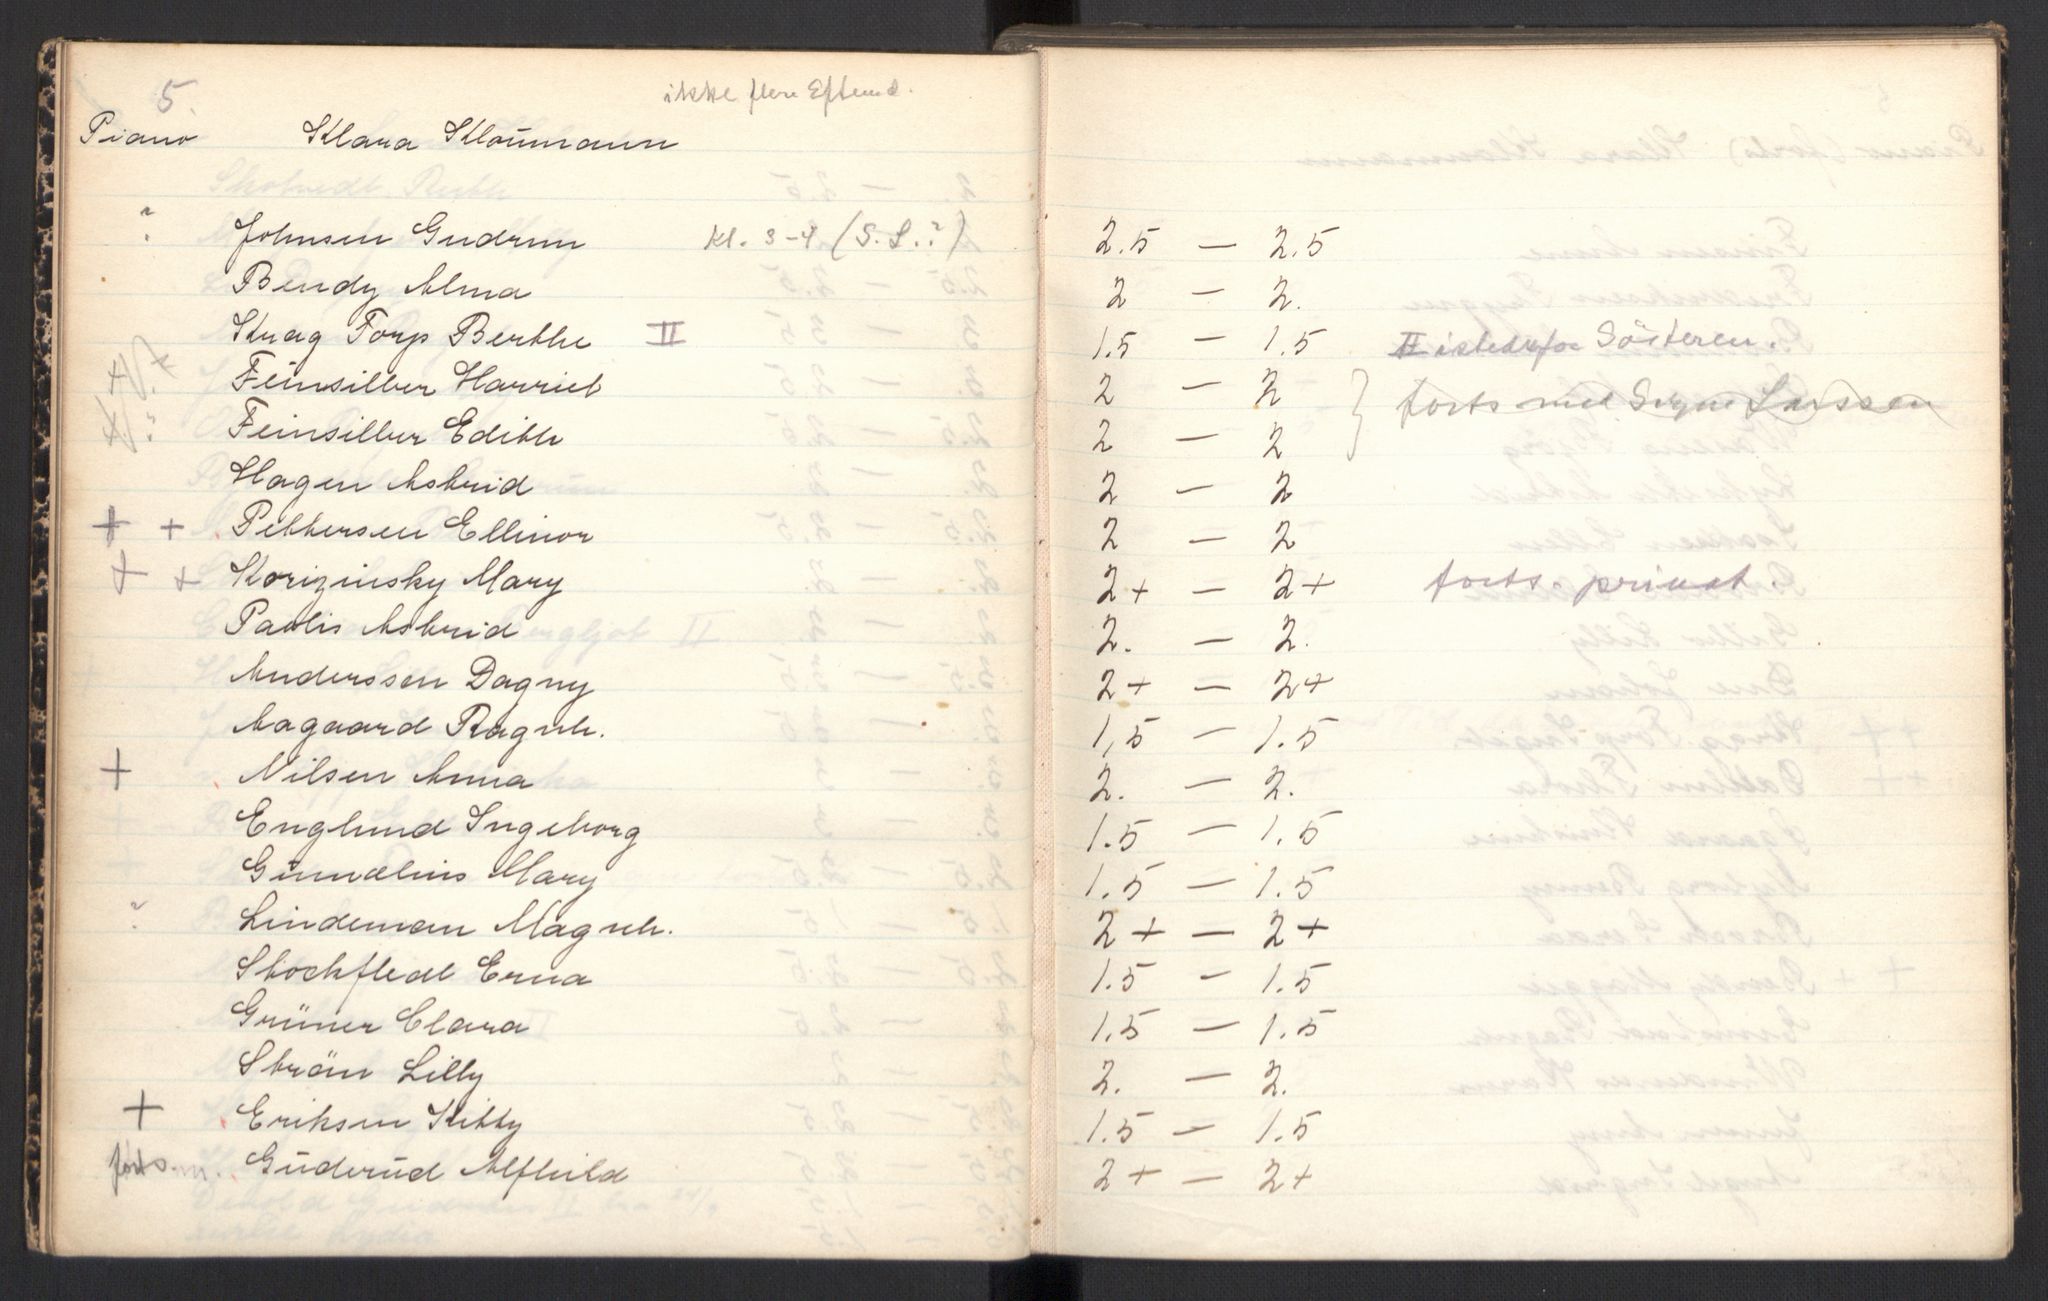 5. ikke flere Eftermd.
Piano Klara Kloumann
? Johnsen Gudrun kl. 3-4 (S. L.?) 2.5 — 2.5
Bendy Alma 2 — 2.
Krag Torp Berthe II 1.5 — 1.5 II istedefor Søsteren.
+ Feinsilber Harriet 2 — 2
? Feinsilber Edith 2 — 2 } forts med Signe Larssen
Hagen Astrid 2 — 2
+ + Pettersen Ellinor 2 — 2
+ + Korizinsky Mary 2+ — 2+ forts. privat.
Paulis Astrid 2. — 2.
Anderssen Dagny 2+ — 2+
Aagaard Ragnh. 1,5 — 1.5
+ Nilsen Anna 2. — 2.
Englund Ingeborg 1.5 — 1.5
Gunnelius Mary 1.5 — 1.5
? Lindeman Magnh. 2+ — 2+
Stockfledt Erna 1.5 — 1.5
Grüner Clara 1.5 — 1.5
Strön Lilly 2. — 2.
+ Eriksen Kitty 1.5 — 1.5
forts. m. Guderud Alfhild 2+ — 2+